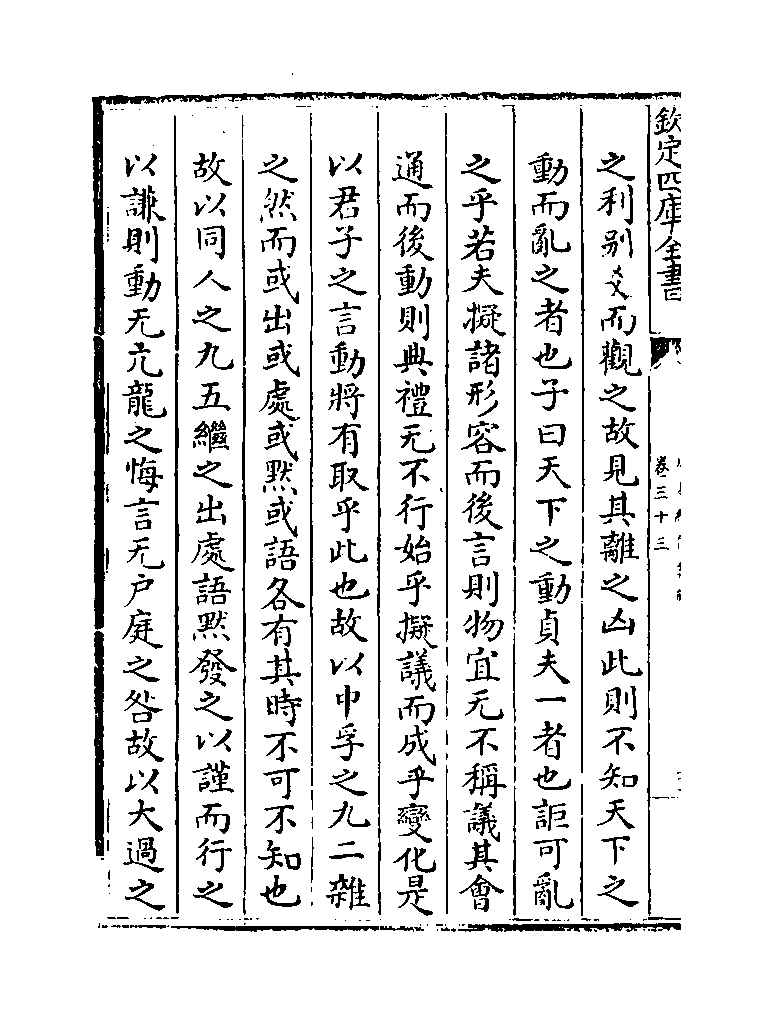 欽定四庫全書
卷三十三
之利别爻而觀之故見其離之凶此則不知天下之
動而亂之者也子曰天下之動貞夫一者也詎可亂
之乎若夫擬諸形容而後言則物宜无不稱議其會
通而後動則典禮无不行始乎擬議而成乎變化是
以君子之言動將有取乎此也故以中孚之九二雜
之然而或出或處或默或語各有其時不可不知也
故以同人之九五繼之出處語默發之以謹而行之
以謙則動无亢龍之悔言无户庭之咎故以大過之